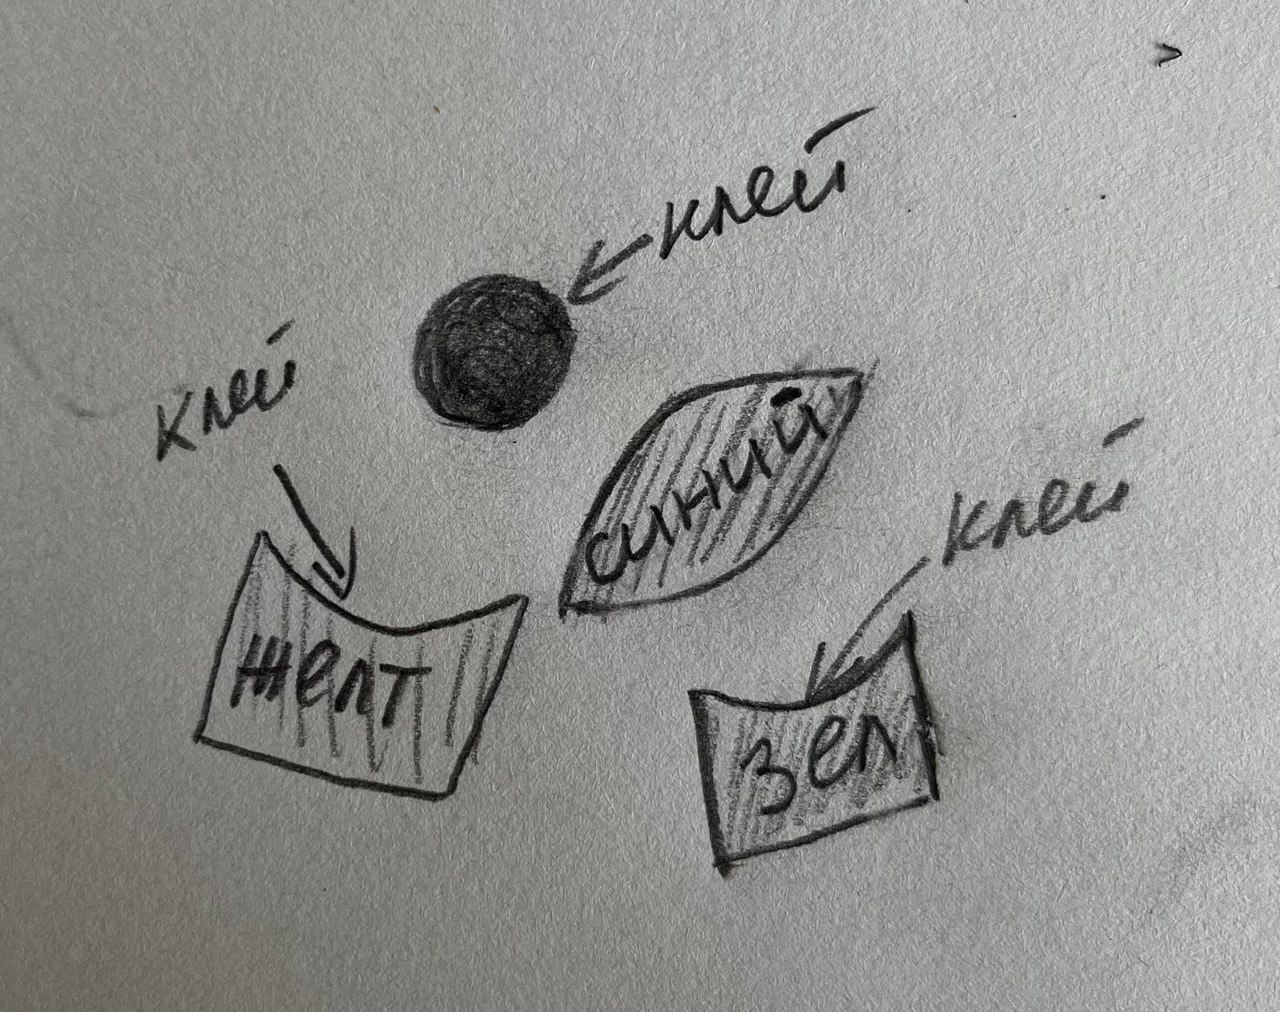 клей
клей
синий
клей
желт
зел